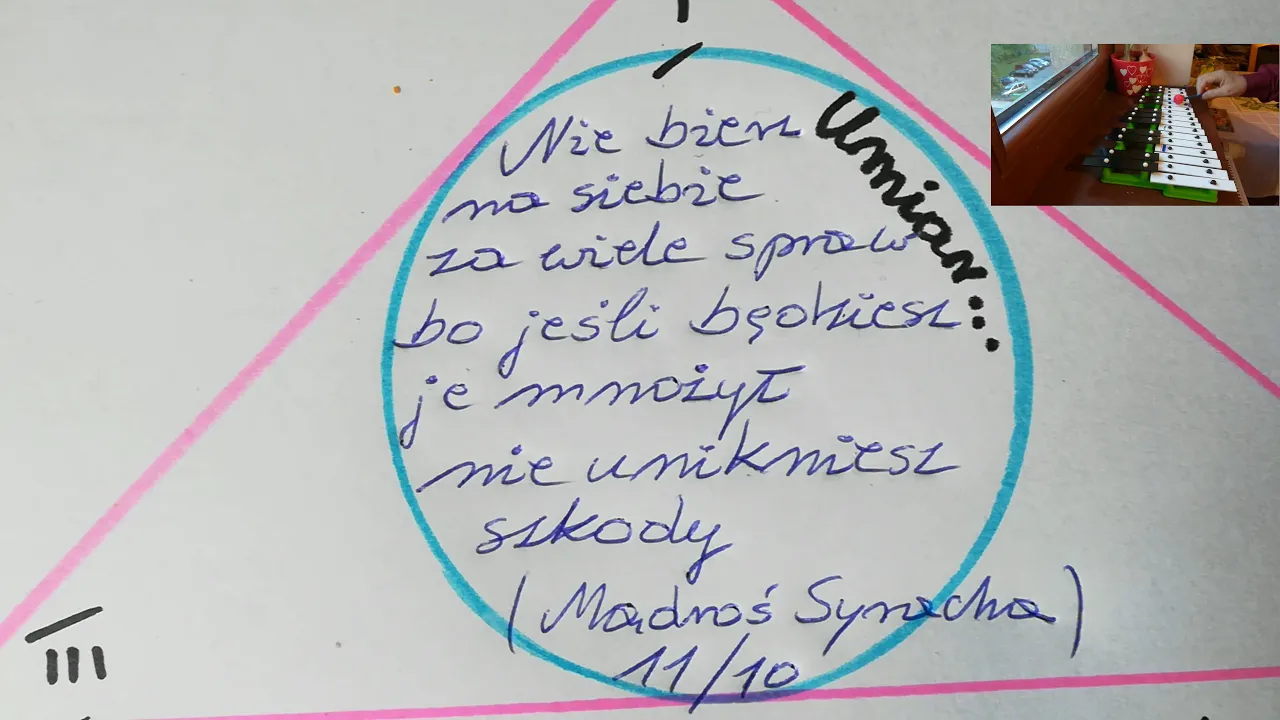 I
Nie bierz
na siebie
za wiele spraw
bo jeśli będziesz
je mnożył
nie unikniesz
szkody
(Mądroś Syracha)
11/10
Umiar...
III